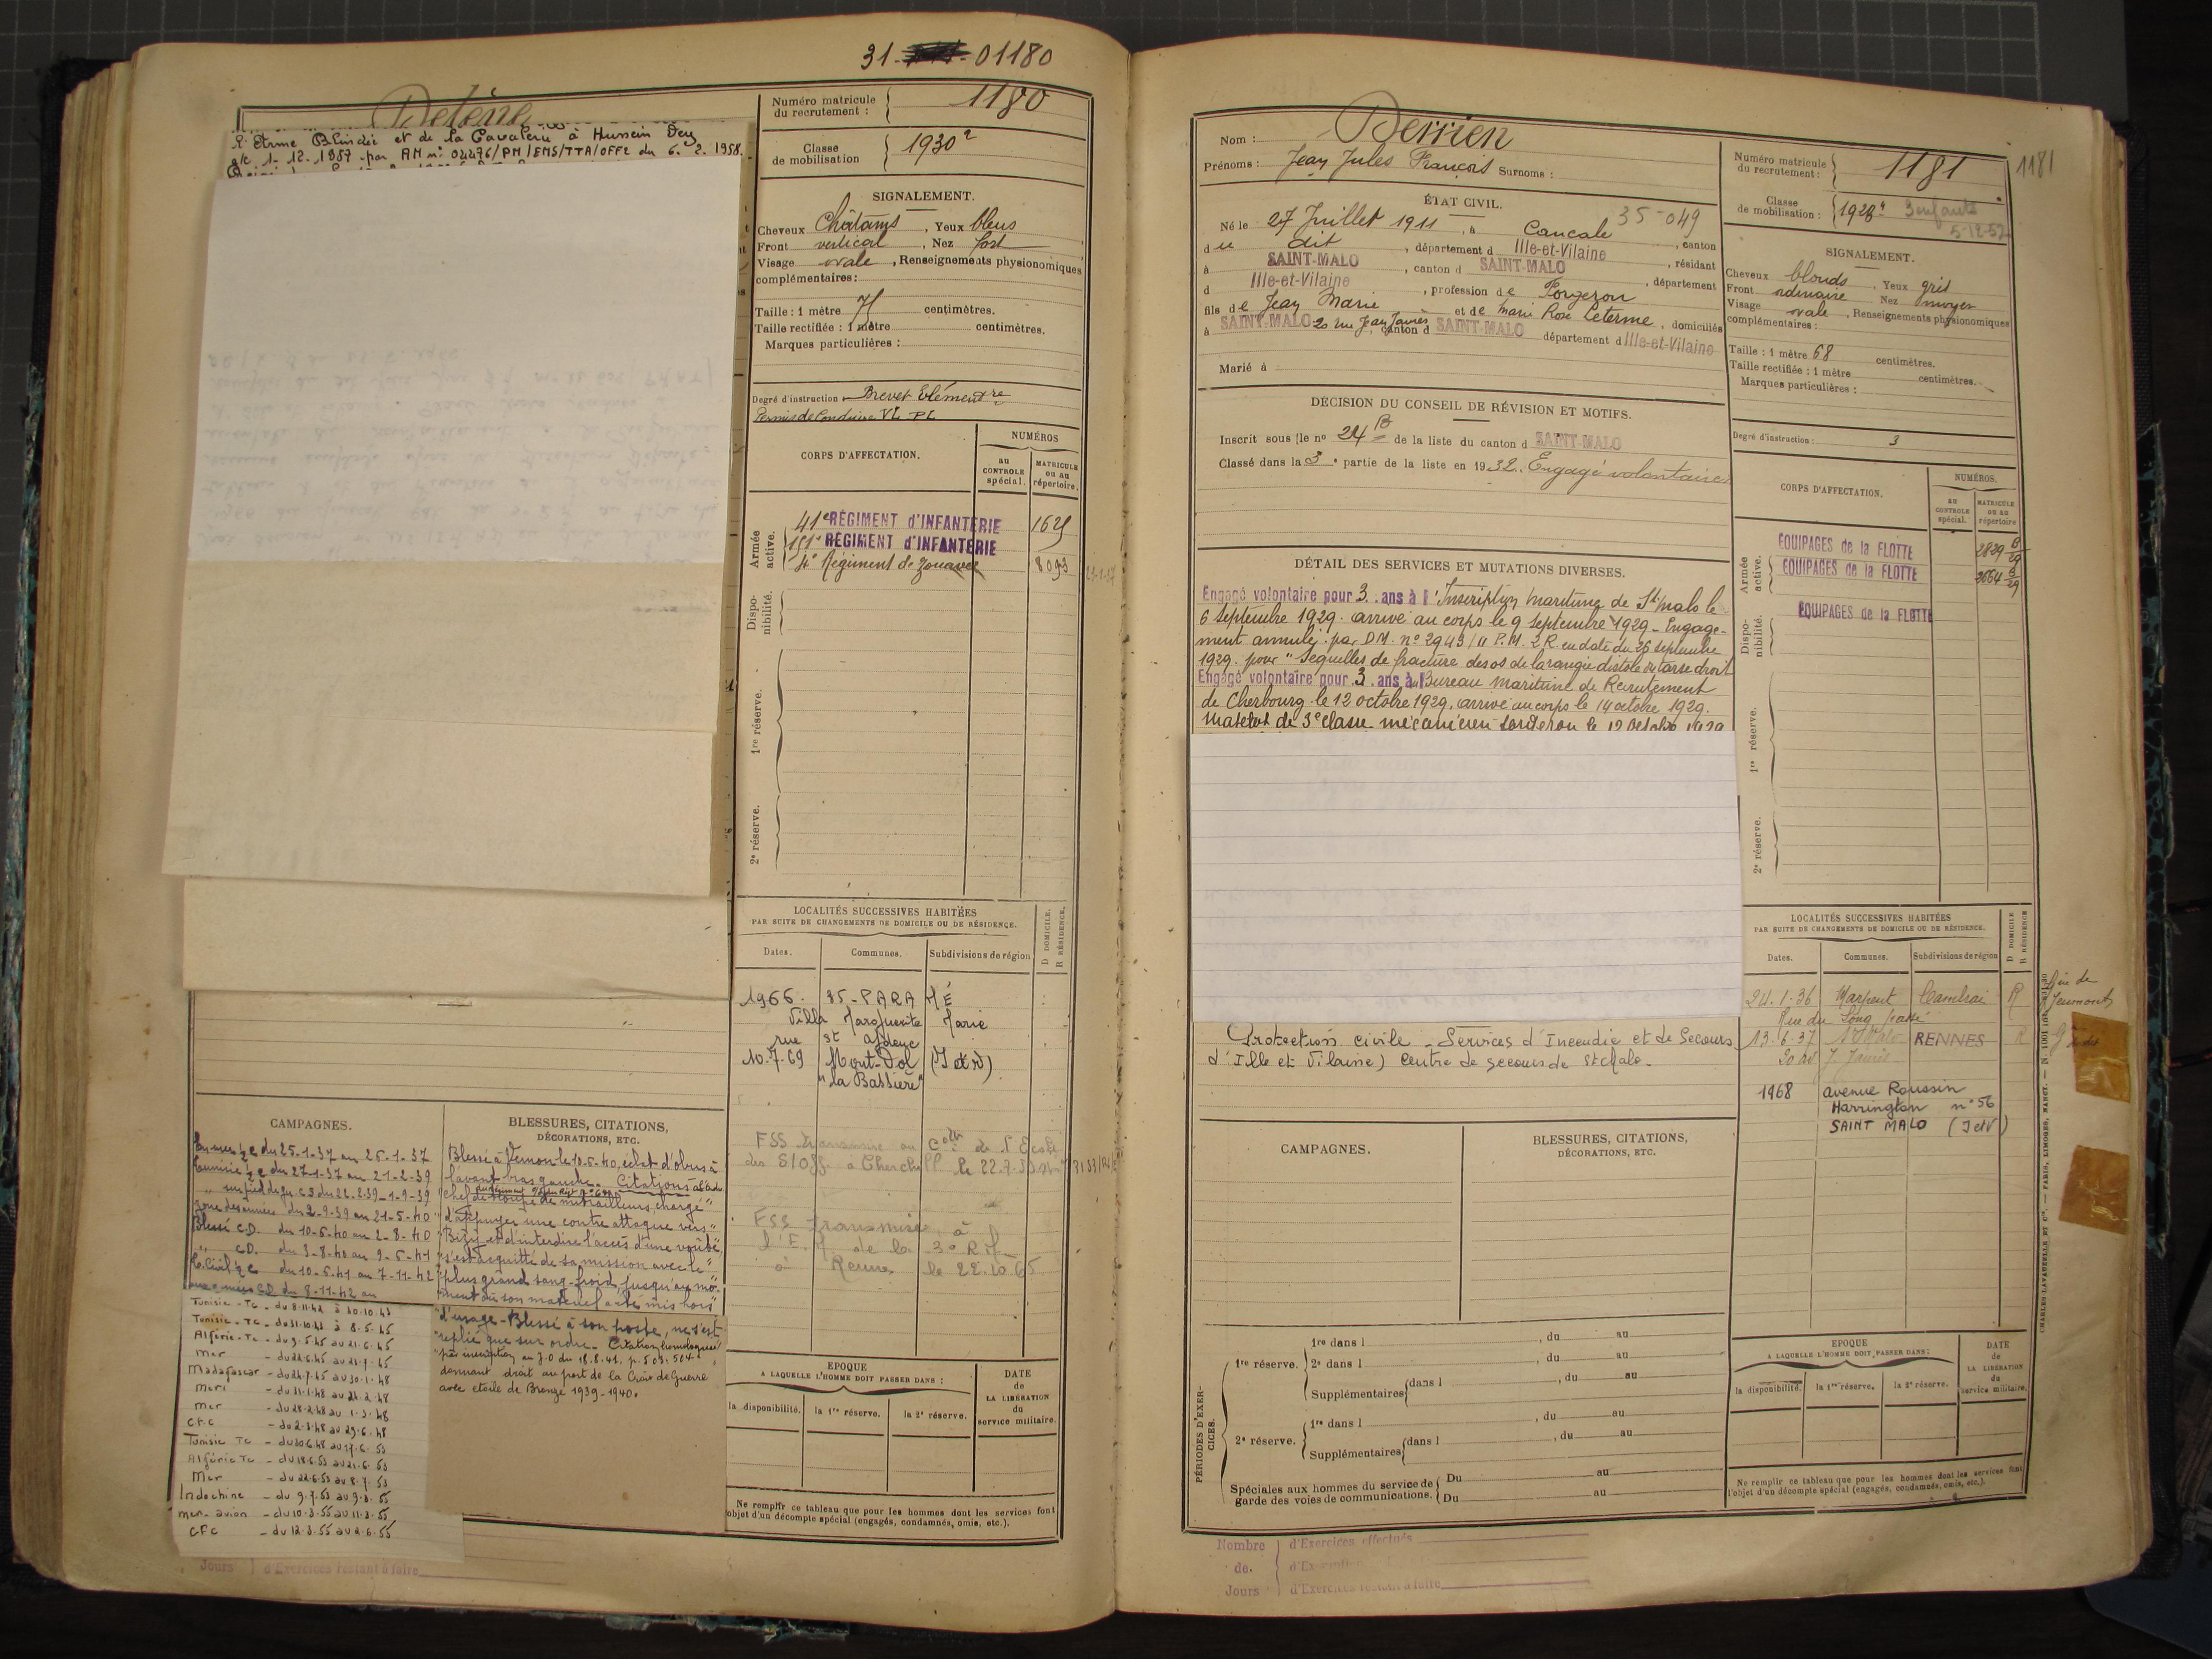 31 - 01180
Numéro matricule du recrutement : 1180
Classe de mobilisation 1930
L'Arme Blindée et de la Cavalerie à Hussein Dey
a/c 1-12-1957 par AM n° 04476/PM/EMS/TTA/OFF2 du 6.2.1958.
SIGNALEMENT.
Cheveux Châtains, Yeux bleus
Front vertical, Nez fort
Visage ovale, Renseignements physionomiques
complémentaires :
Taille : 1 mètre 71 centimètres.
Taille rectifiée : 1 mètre centimètres.
Marques particulières :
Degré d'instruction Brevet Elémentre
Permis de Conduire VL - PL
CORPS D'AFFECTATION.
NUMÉROS
au CONTROLE spécial.
MATRICULE ou au répertoire.
Armée active.
41e RÉGIMENT d'INFANTERIE 1625
151e RÉGIMENT d'INFANTERIE
4e Régiment de Zouaves 8093
Disponibilité.
1re réserve.
2e réserve.
LOCALITÉS SUCCESSIVES HABITÉES
PAR SUITE DE CHANGEMENTS DE DOMICILE OU DE RÉSIDENCE.
D DOMICILE.
R RÉSIDENCE.
Dates. Communes. Subdivisions de région
1966. 35 - PARAMÉ
Villa Marguerite Marie
rue St
10.7.69 Mont-Dol (I et V)
"la Bassière"
FSS transmise au de l'Ecole
des S/Off. à Cherchell le 22.7.
FSS transmise à
l'E.M. de la 3e RM
à Rennes le 22.10.65
EPOQUE
A LAQUELLE L'HOMME DOIT PASSER DANS :
la disponibilité. la 1re réserve. la 2e réserve.
DATE de LA LIBÉRATION du service militaire.
Ne remplir ce tableau que pour les hommes dont les services font
l'objet d'un décompte spécial (engagés, condamnés, omis, etc.).
CAMPAGNES.
du 25-1-37 au 26-1-37
Tunisie du 27-1-37 au 21-2-39
du 22-2-39 - 1-9-39
Zone des armées du 2-9-39 au 21-5-40
Blessé C.D. du 10-6-40 au 2-8-40
" C.D. du 3-8-40 au 9-5-41
du 10-5-41 au 7-11-42
aux armées CD du 8-11-42 au
Tunisie - TC - du 8.11.42 à 30.10.43
Tunisie - TC - du 31.10.43 à 8.5.45
Algérie - TC - du 9.5.45 au 21.6.45
Mer - du 22.6.45 au 21.7.45
Madagascar - du 22.7.45 au 30.1.48
Mer - du 28.2.48 au 1.3.48
CFC - du 2.3.48 au 29.6.48
Tunisie TC - du 30.6.48 au 17.6.53
Algérie TC - du 18.6.53 au 21.6.53
Mer - du 22.6.53 au 8.7.53
Indochine - du 9.7.53 au 9.3.55
mer-avion - du 10.3.55 au 11.3.55
CFC - du 12.3.55 au 2.6.55
BLESSURES, CITATIONS,
DÉCORATIONS, ETC.
Blessé à Vernon le 10.6.40, éclat d'obus à
l'avant bras gauche. Citations
"chef de groupe de mitrailleurs, chargé"
"d'appuyer une contre attaque vers"
"Bizy et d'interdire l'accès d'une voûte,
"s'est acquitté de sa mission avec le"
"plus grand sang-froid, jusqu'au mo-
"ment où son matériel a été mis hors"
"d'usage - Blessé à son poste, ne s'est
"replié que sur ordre. Citation homologuée
"par inscription au J.O du 18.8.41. p. 503.504.
donnant droit au port de la Croix de Guerre
avec étoile de Bronze 1939-1940.
Jours d'Exercices restant à faire
Nom : Derrien
Prénoms : Jean Jules François Surnoms :
Numéro matricule du recrutement : 1181
1181
Classe de mobilisation : 1928 3 enfants
5-12-52
ÉTAT CIVIL.
35-049
Né le 27 Juillet 1911, à Cancale, canton
du dit, département d Ille-et-Vilaine, résidant
à SAINT-MALO, canton d SAINT-MALO, département
d Ille-et-Vilaine, profession de Forgeron
fils de Jean Marie et de Marie Rose Leterme, domiciliés
à SAINT-MALO 20 rue Jean Jaurès canton d SAINT-MALO département d Ille-et-Vilaine
Marié à
SIGNALEMENT.
Cheveux blonds, Yeux gris
Front ordinaire Nez moyen
Visage ovale, Renseignements physionomiques
complémentaires :
Taille : 1 mètre 68 centimètres.
Taille rectifiée : 1 mètre centimètres.
Marques particulières :
Degré d'instruction : 3
DÉCISION DU CONSEIL DE RÉVISION ET MOTIFS.
Inscrit sous le n° 24 B de la liste du canton d SAINT-MALO
Classé dans la 3e partie de la liste en 1932. Engagé volontaire
DÉTAIL DES SERVICES ET MUTATIONS DIVERSES.
Engagé volontaire pour 3 ans à l'Inscription maritime de St Malo le
6 Septembre 1929. arrivé au corps le 9 Septembre 1929 - Engage-
ment annulé par D.M. n° 2943/11 P.M. 2 R. en date du 26 septembre
1929. pour "Sequelles de fracture des os de la rangée distale du tarse droit
Engagé volontaire pour 3 ans à Bureau maritime de Recrutement
de Cherbourg le 12 octobre 1929, arrivé au corps le 14 octobre 1929.
Matelot de 3e classe mécanicien le 12 Octobre 1929
Protection civile - Services d'Incendie et de Secours
d'Ille et Vilaine) Centre de secours de St Malo -
CORPS D'AFFECTATION.
NUMÉROS.
au CONTROLE spécial.
MATRICULE ou au répertoire
Armée active.
ÉQUIPAGES de la FLOTTE 2829 B/29
ÉQUIPAGES de la FLOTTE 2664 B/29
Disponibilité.
ÉQUIPAGES de la FLOTTE
1re réserve.
2e réserve.
LOCALITÉS SUCCESSIVES HABITÉES
PAR SUITE DE CHANGEMENTS DE DOMICILE OU DE RÉSIDENCE.
D DOMICILE
R RÉSIDENCE
Dates. Communes. Subdivisions de région
24.1.36 Marpent Cambrai R
Rue du Long
Gie de Jeumont
13.6.37 St Malo RENNES R
20 rue J Jaurès
1968 avenue Roussin
Harrington n° 56
SAINT MALO (I et V)
CAMPAGNES.
BLESSURES, CITATIONS,
DÉCORATIONS, ETC.
PÉRIODES D'EXERCICES.
1re réserve.
1re dans l , du au
2e dans l , du au
Supplémentaires dans l , du au
2e réserve.
1re dans l , du au
Supplémentaires dans l , du au
Spéciales aux hommes du service de
garde des voies de communications.
Du au
Du au
EPOQUE
A LAQUELLE L'HOMME DOIT PASSER DANS :
la disponibilité. la 1re réserve. la 2e réserve.
DATE de LA LIBÉRATION du service militaire.
Ne remplir ce tableau que pour les hommes dont les services font
l'objet d'un décompte spécial (engagés, condamnés, omis, etc.).
Nombre de Jours
d'Exercices effectués
d'Exercices restant à faire